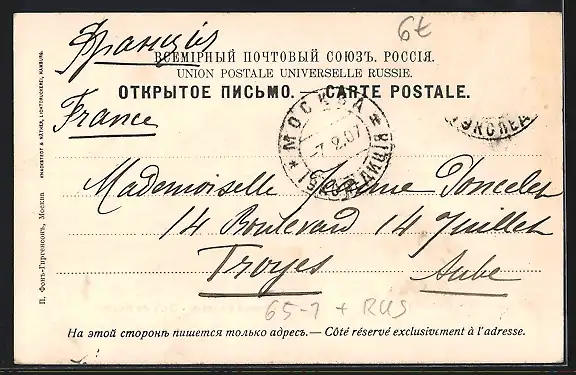 6€
Франція
ВСЕМІРНЫЙ ПОЧТОВЫЙ СОЮЗЪ. РОССІЯ.
UNION POSTALE UNIVERSELLE RUSSIE.
ОТКРЫТОЕ ПИСЬМО. — CARTE POSTALE.
France
МОСКВА
7.2.07
ЭКСПЕДИЦІЯ
ЭКСПЕД
Mademoiselle Jeanne Poncelet
14 Boulevard 14 Juillet
Troyes Aube
65-1 + RUS
На этой сторонѣ пишется только адресъ. — Côté réservé exclusivement à l'adresse.
П. Фонъ-Гиргенсонъ, Москва
KNACKSTEDT & NÄTHER, LICHTDRUCKEREI, HAMBURG.